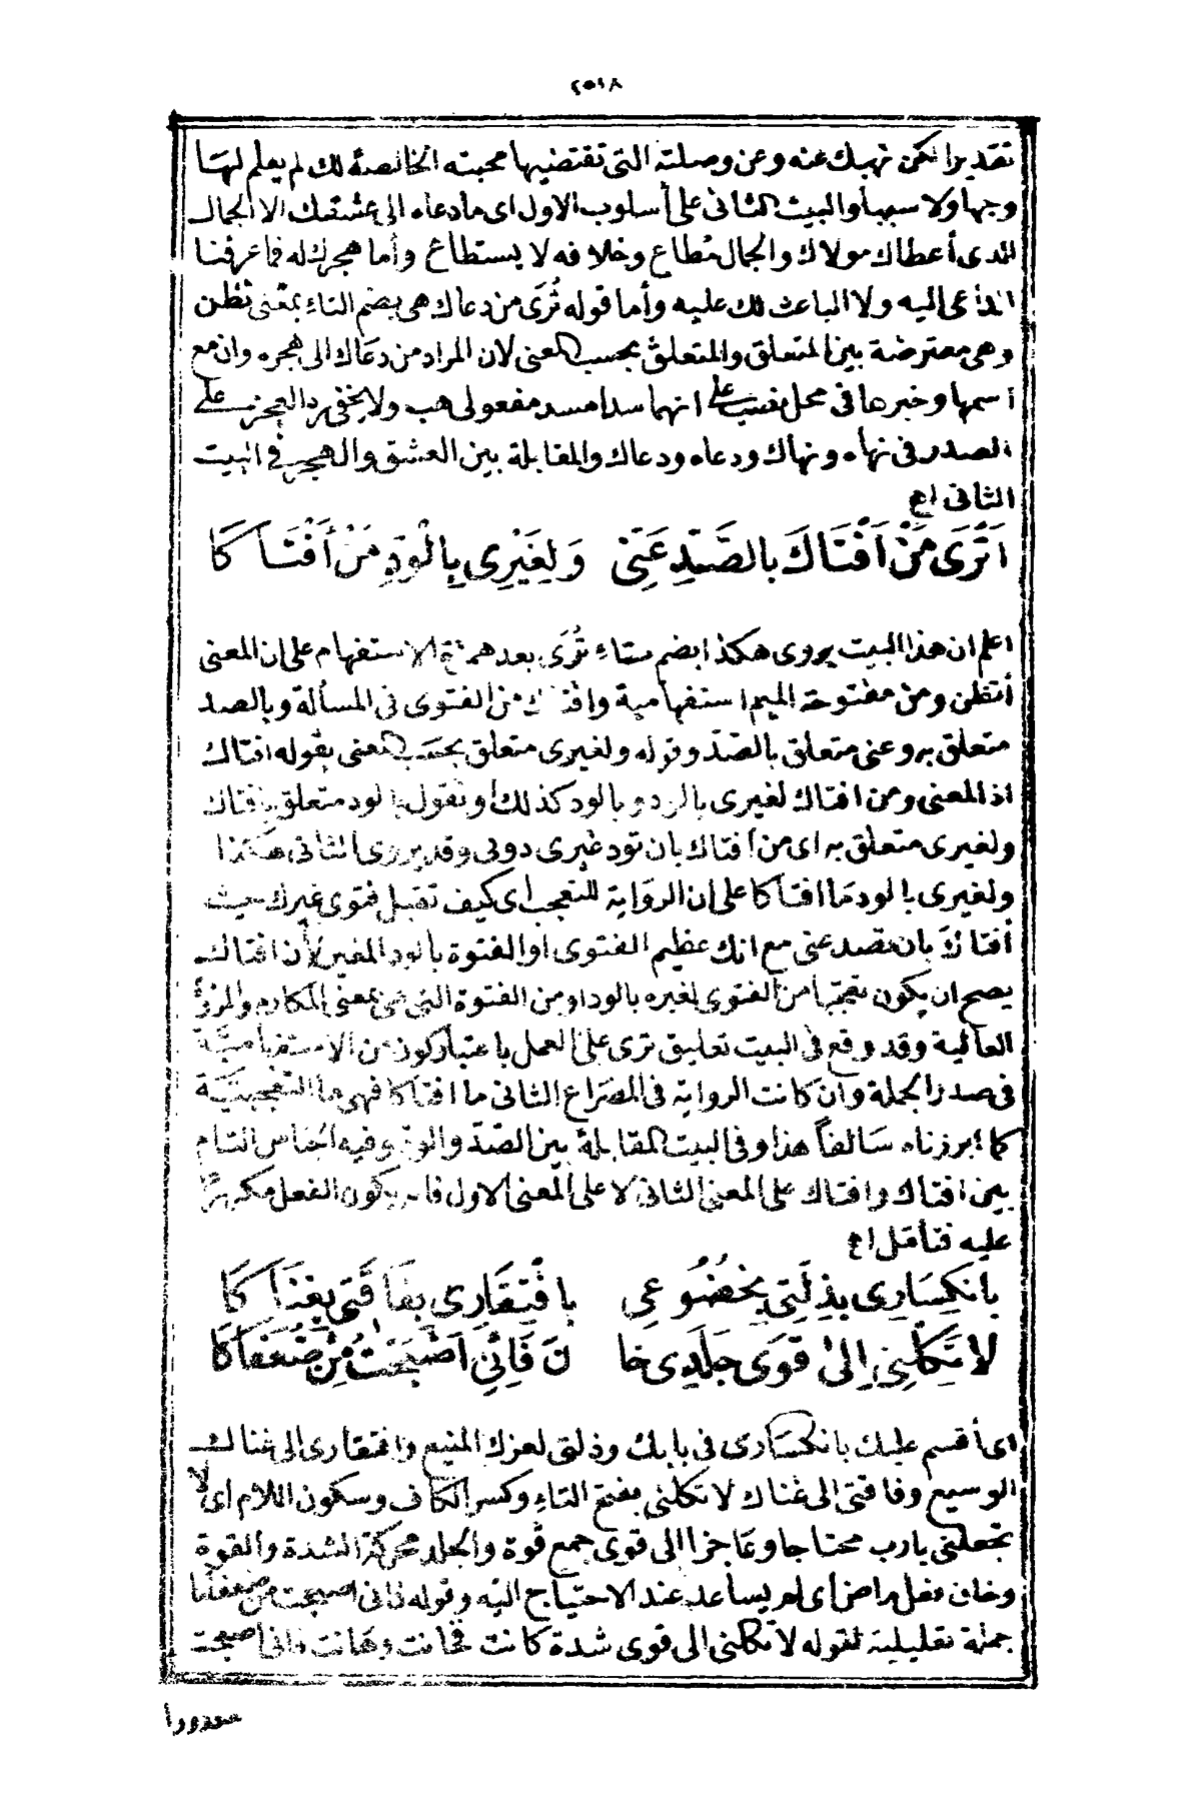 تقديرا لكن نهيك عنه وعن وصلته التى تقتضيها محبته الخالصة لك لم يعلم لها
وجها ولا سببا والبيت الثانى على أسلوب الاول اى ما دعاه الى عشقك الا الجمال
الذى أعطاك مولاك والجمال مُطاع وخلافه لا يستطاع وأما هجرك له فما عرفنا
الداعى اليه ولا الباعث لك عليه وأما قوله تُرَى من دعاك هى بضم التاء بمعنى تظن
وهى معترضة بين المتعلق والمتعلق بحسب المعنى لان المراد من دعاك الى هجره وان مع
اسمها وخبرها فى محل نصب على انهما سدا مسد مفعولى هب ولا يخفى رد العجز على
الصدر فى نهاه ونهاك ودعاه ودعاك والمقابلة بين العشق والهجر فى البيت
الثانى اھ
اَتُرَى مَنْ اَفْتَاكَ بالصَّدِّ عَنِّى وَلِغَيْرِى بِالْوُدِّ مَنْ أَفْتَاكَا
اعلم ان هذا البيت يروى هكذا بضم تاء تُرَى بعد همزة الاستفهام على ان المعنى
أتظن ومن مفتوحة الميم استفهامية وافتاك من الفتوى فى المسألة وبالصد
متعلق به وعنى متعلق بالصّدّ وقوله ولغيرى متعلق بحسب المعنى بقوله افتاك
اذ المعنى ومن افتاك لغيرى بالود وبالود كذلك او تقول بالود متعلق بافتاك
ولغيرى متعلق به اى من افتاك بان تود غيرى دونى وقد يروى الثانى هكذا
ولغيرى بالود ما افتاكا على ان الرواية للتعجب اى كيف تقبل فتوى غيرك حيث
أفتاك بان تصد عنى مع انك عظيم الفتوى او الفتوة بالود للغير لأن افتاك
يصح ان يكون تعجبا من الفتوى لغيره بالود او من الفتوة التى هى بمعنى المكارم والمروأة
العالية وقد وقع فى البيت تعليق ترى على العمل باعتبار كون من الاستفهامية
فى صدر الجملة وان كانت الرواية فى المصراع الثانى ما افتاكا فهى ما التعجبية
كما ابرزناه سالفاً هذا وفى البيت المقابلة بين الصّدّ والودّ وفيه الجناس التام
بين افتاك وافتاك على المعنى الثانى لا على المعنى الاول يكون الفعل مكررا
عليه فتأمل اھ
بانكِسَارِى بِذِلَّتِى بِخُضُوعِى بِافْتِقَارِى بِفَاقَتِى بِغِنَاكَا
لا تَكِلْنِى اِلَىٰ قُوَى جَلَدٍ خا نَ فَاِنِّى اَصْبَحْتُ مِنْ ضُعَفَاكَا
اى أقسم عليك بانكسارى فى بابك وذلتى لعزك المنيع وافتقارى الى غناك
الوسيع وفاقتى الى غناك لا تكلنى بفتح التاء وكسر الكاف وسكون اللام اى لا
تجعلنى يا رب محتاجا وعاجزا الى قوى جمع قوة والجلد محركة الشدة والقوة
وخان فعل ماض أى لم يساعد عند الاحتياج اليه وقوله فانى اصبحت من ضعفاكا
جملة تعليلية لقوله لا تكلنى الى قوى شدة كانت فخانت وهانت فانى اصبحت
معدودا